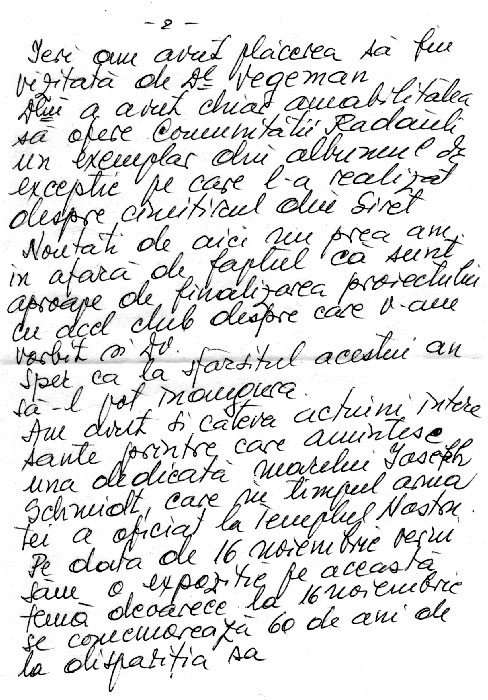 - 2 -
Ieri am avut plăcerea să fiu
vizitată de Dl Vegeman
Dlui a avut chiar amabilitatea
să ofere Comunității Rădăuți
un exemplar din albumul de
excepție pe care l-a realizat
despre cimitirul din Siret
Noutăți de aici nu prea am,
in afară de faptul că sunt
aproape de finalizarea proiectului
cu acel club despre care v-am
vorbit și Dv.
Sper ca la sfârsitul acestui an
să-l pot inaugura.
Am avut si câteva actiuni intere
sante printre care amintesc
una dedicată marelui Joseph
Schmidt, care in timpul
a oficiat la Templul Nostru.
Pe data de 16 noiembrie
o expoziție pe această
temă deoarece la 16 noiembrie
se comemorează 60 de ani de
la dispariția sa